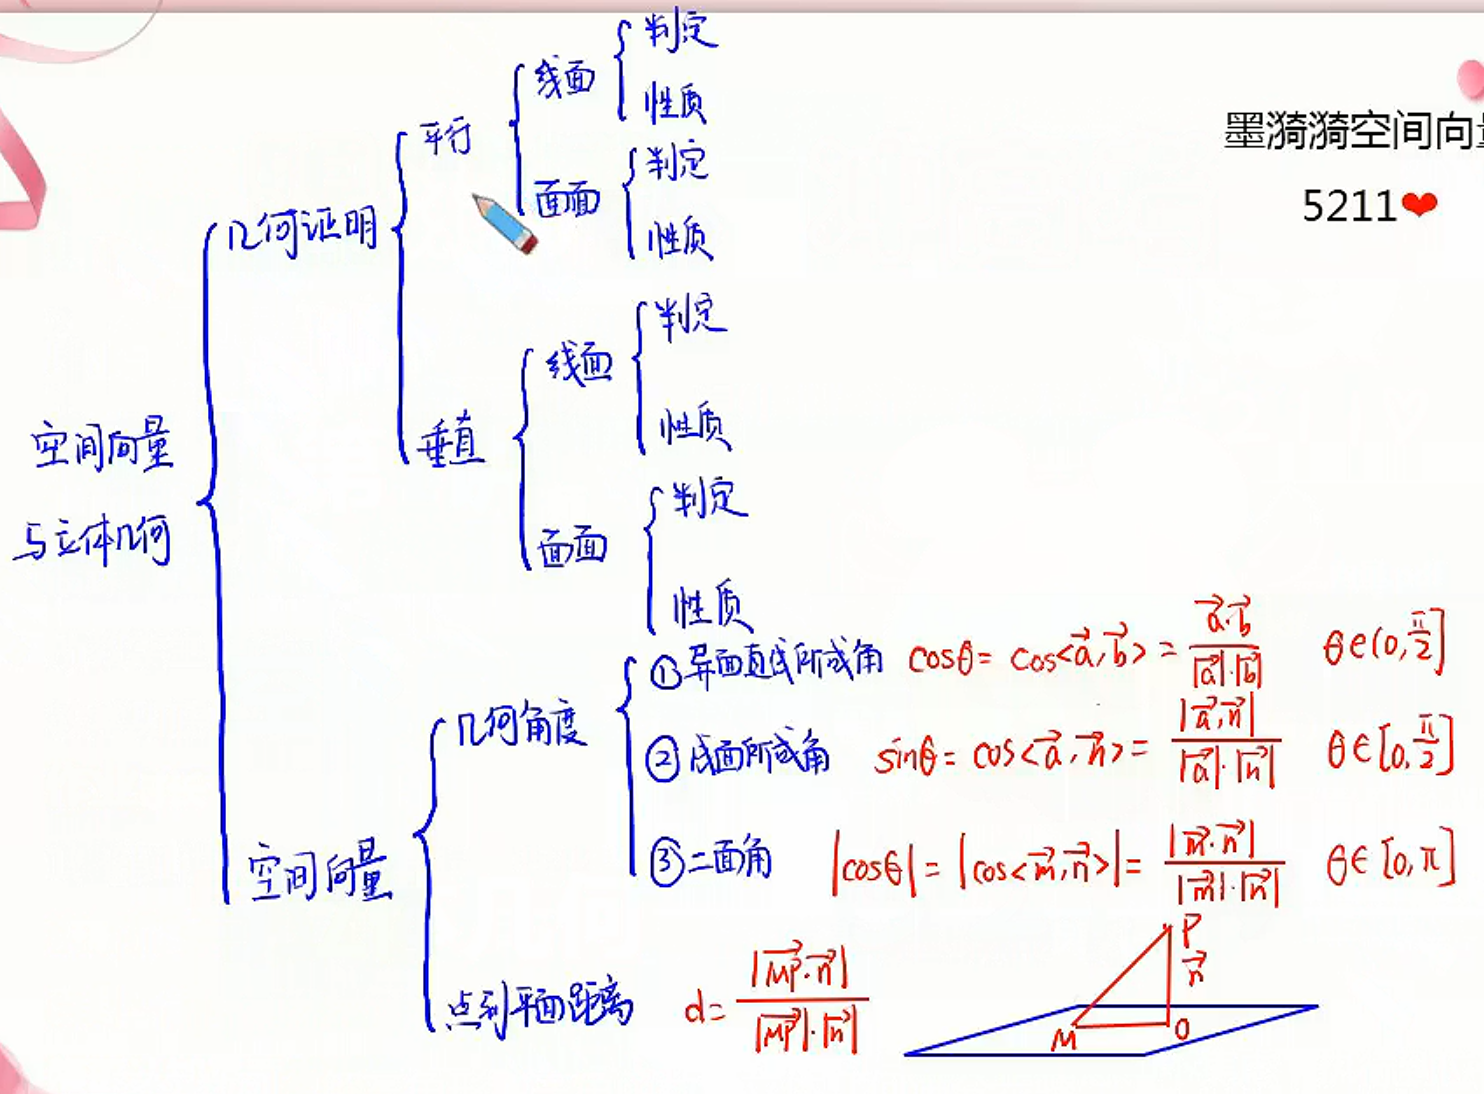 墨漪漪空间向
5211❤
空间向量
与立体几何
几何证明
平行
线面
判定
性质
面面
判定
性质
垂直
线面
判定
性质
面面
判定
性质
空间向量
几何角度
①异面直线所成角 cosθ = cos<a⃗,b⃗> = a⃗·b⃗ / |a⃗|·|b⃗| θ∈(0,π/2]
②线面所成角 sinθ = cos<a⃗,n⃗> = |a⃗,n⃗| / |a⃗|·|n⃗| θ∈[0,π/2]
③二面角 |cosθ| = |cos<m⃗,n⃗>| = |m⃗·n⃗| / |m⃗|·|n⃗| θ∈[0,π]
点到平面距离 d = |MP⃗·n⃗| / |MP⃗|·|n⃗|
P
n⃗
M
O